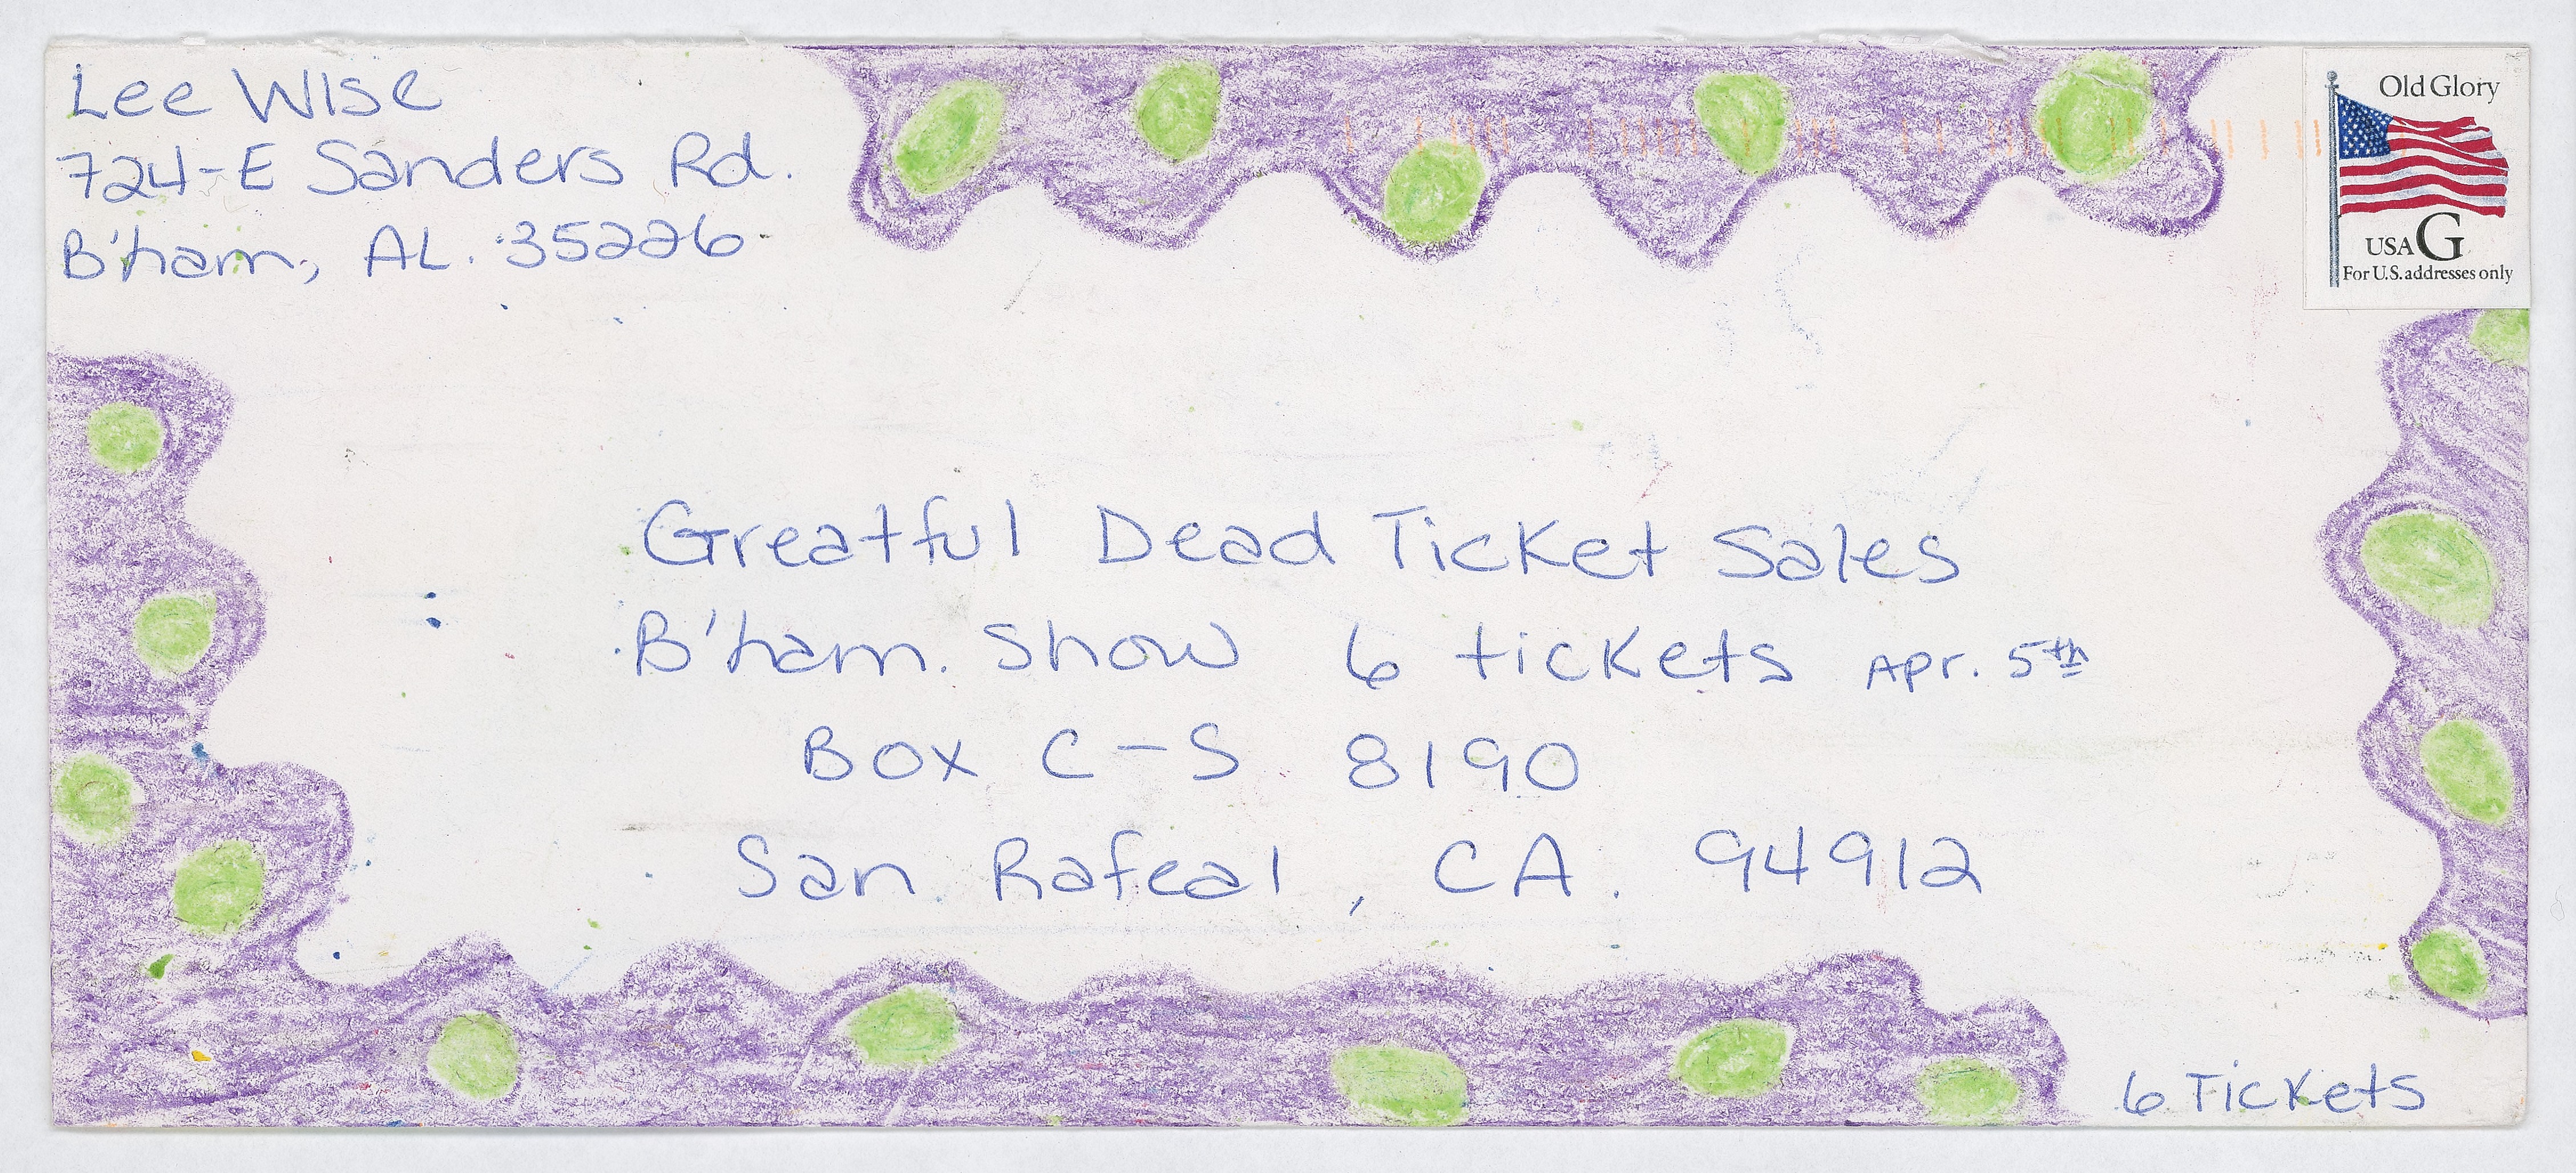 Lee Wise
724-E Sanders Rd.
B'ham, AL. 35226
Old Glory
USA G
For U.S. addresses only
Greatful Dead Ticket Sales
B'ham. Show 6 tickets Apr. 5th
Box C-S 8190
San Rafeal, CA. 94912
6 Tickets